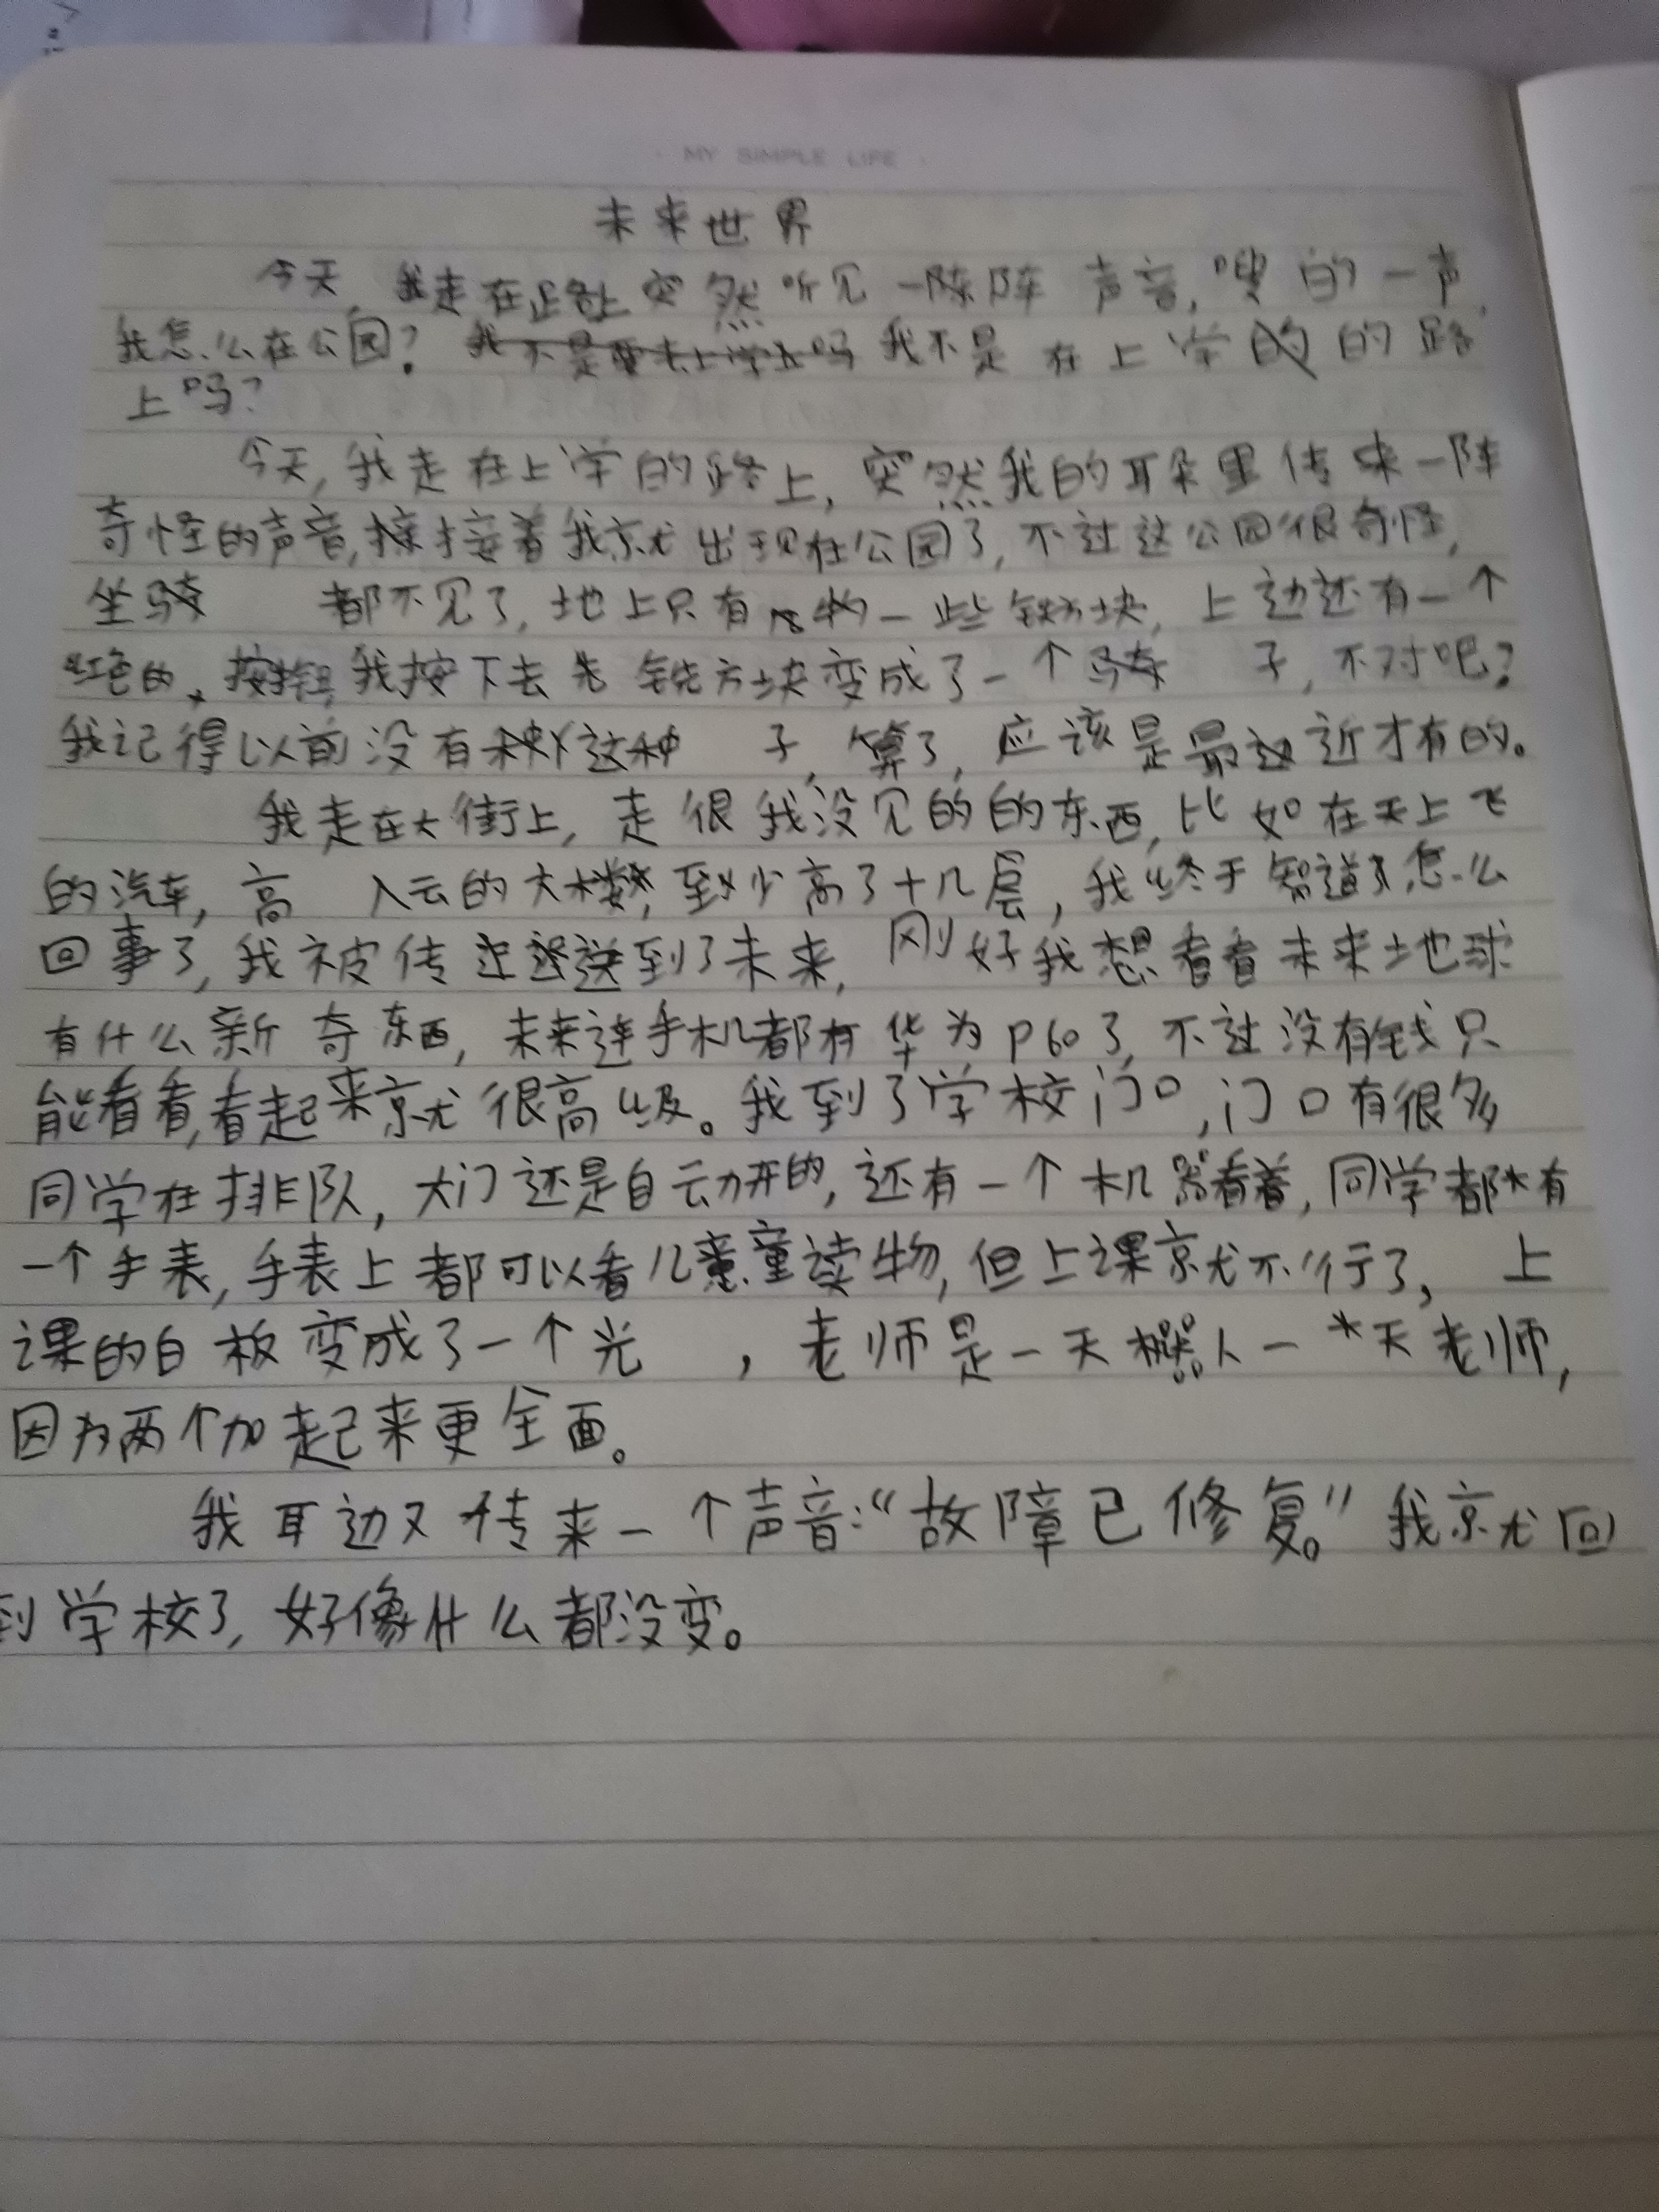 MY SIMPLE LIFE
未来世界
今天,我走在路上突然听见一阵阵声音,嗖的一声,
我怎么在公园?我不是在上学的路
上吗?
今天,我走在上学的路上,突然我的耳朵里传来一阵
奇怪的声音,接着我就出现在公园了,不过这公园很奇怪,
坐骑 都不见了,地上只有一些铁方块,上边还有一个
红色的按钮,我按下去 铁方块变成了一个骑 子,不对吧?
我记得以前没有这种 子,算了,应该是最近才有的。
我走在大街上,走很我没见的的东西,比如在天上飞
的汽车,高 入云的大楼,至少高了十几层,我终于知道了怎么
回事了,我被传送到了未来,刚好我想看看未来地球
有什么新奇东西,未来连手机都有华为p60了,不过没有钱只
能看看,看起来就很高级。我到了学校门口,门口有很多
同学在排队,大门还是自动开的,还有一个机器看着,同学都有
一个手表,手表上都可以看儿童读物,但上课就不行了, 上
课的白板变成了一个光 ,老师是一天机器人一天老师,
因为两个加起来更全面。
我耳边又传来一个声音:“故障已修复。”我就回
到学校了,好像什么都没变。